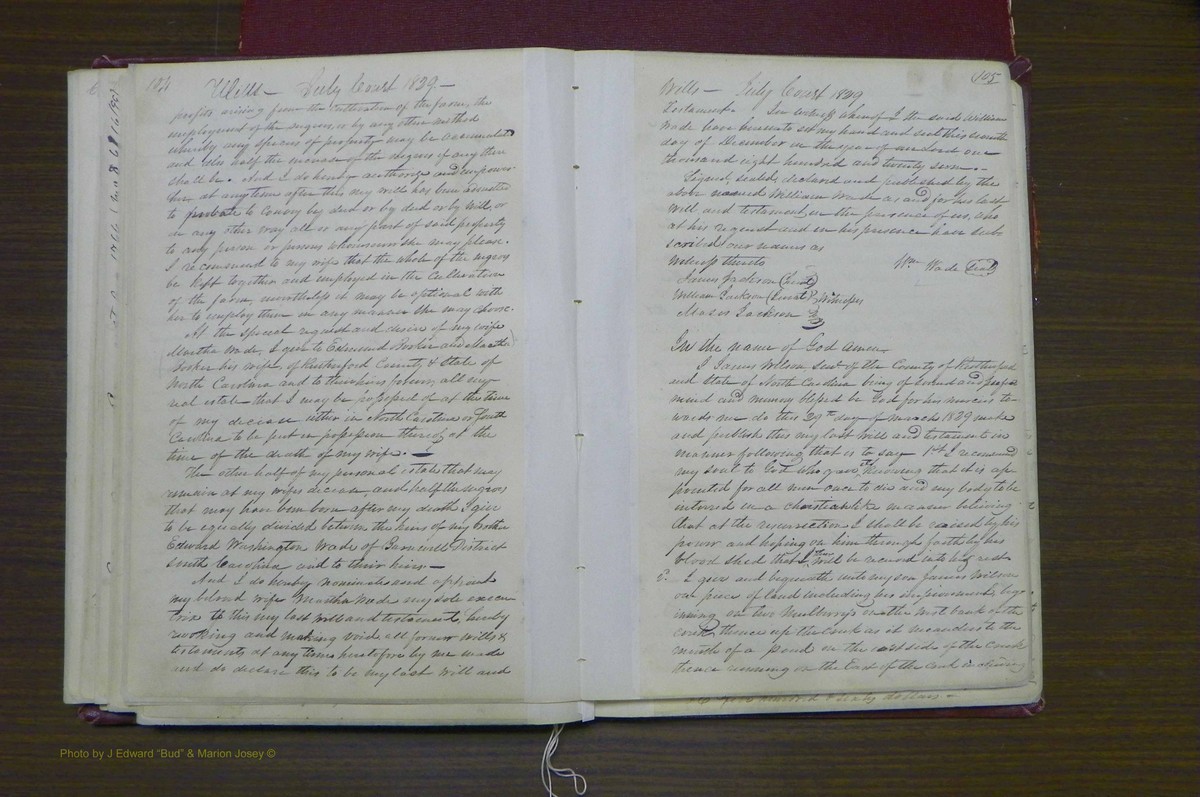 104 Wills — July Court 1829 —
profits arising from the cultivation of the farm, the
employment of the negroes, or by any other method
whereby any species of property may be accumulated
and also half the increase of the negroes if any there
shall be. And I do hereby authorize and empower
her at any time after this my will has been admitted
to probate to convey by deed or by deed or by will, or
in any other way all or any part of said property
to any person or persons whomsoever she may please.
I recommend to my wife that the whole of the negroes
be kept together and employed in the cultivation
of the farm, nevertheless it may be optional with
her to employ them in any manner she may choose.
At the special request and desire of my wife
Martha Wade, I give to Edmund Bosker and Martha
Bosker his wife, of Rutherford County, & State of
North Carolina and to their heirs forever, all my
real estate that I may be possessed of at the time
of my decease either in North Carolina or South
Carolina to be put in possession thereof at the
time of the death of my wife. —
The other half of my personal estate that may
remain at my wifes decease and half the negroes
that may have been born after my death I give
to be equally divided between the heirs of my brother
Edward Washington Wade of Barnwell District
South Carolina and to their heirs —
And I do hereby nominate and appoint
my beloved wife Martha Wade my sole execu
trix to this my last will and testament, hereby
revoking and making void all former wills &
testaments at any time heretofore by me made
and do declare this to be my last will and
105
Wills — July Court 1829
Testament. In witness whereof I the said William
Wade have hereunto set my hand and seal this seventh
day of December in the year of our Lord one
thousand eight hundred and twenty seven. -
Signed, sealed, declared and published by the
above named William Wade as and for his last
will and testament, in the presence of us, who
at his request and in his presence have sub
scribed our names as
witness thereto Wm Wade (Seal)
James Jackson (Jurat)
William Jackson (Jurat) Witnesses
Moses Jackson
In the name of God amen
I James Wilson Senr of the County of Rutherford
and State of North Carolina being of sound and perfect
mind and memory blessed be God for his mercies to-
wards me do this 29th day of March 1829 make
and publish this my last will and testament in
manner following that is to say 1st I recommend
my soul to God who gave it knowing that it is ap-
pointed for all men once to die and my body to be
interred in a christianlike manner believing
that at the resurrection I shall be raised by his
power and hoping on him through faith by his
blood shed that I then will be received into his rest
2. I give and bequeath unto my son James Wilson
one piece of land including his improvements beg-
inning on two Mulberry's on the west bank of the
creek, thence up the creek as it meanders to the
mouth of a pond on the east side of the creek
thence running on the East of the creek including
hundred & sixty dollars -
Photo by J Edward "Bud" & Marion Josey ©